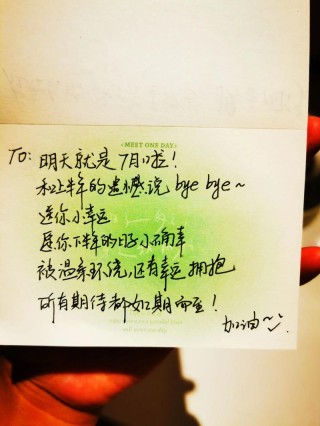 <MEET ONE DAY>
TO: 明天就是7月啦!
和上半年的遗憾说 bye bye~
送你小幸运
愿你下半年的日子小确幸
被温柔环绕,还有幸运拥抱
所有期待都如期而至!
加油~